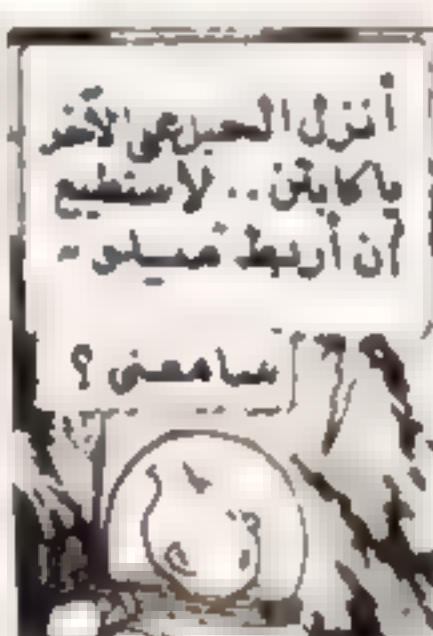 أنزل الحبل الآخر
يا كابتن .. لا أستطيع
أن أربط
سامعني ؟